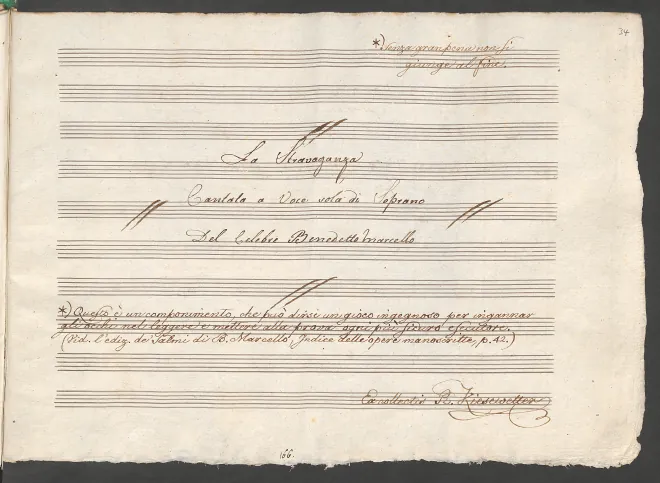 34
*) Senza gran pena non si
giunge al fine.
La Stravaganza
Cantata a Voce sola di Soprano
Del Celebre Benedetto Marcello
*) Questo è un componimento, che può dirsi un gioco ingegnoso per ingannar
gli occhi nel leggere e mettere alla prova ogni più sicuro esecutore.
(Vid. l'ediz. de' Salmi di B. Marcello, Indice delle opere manoscritte, p. 42.)
Ex collectio R. Kiesewetter
166.